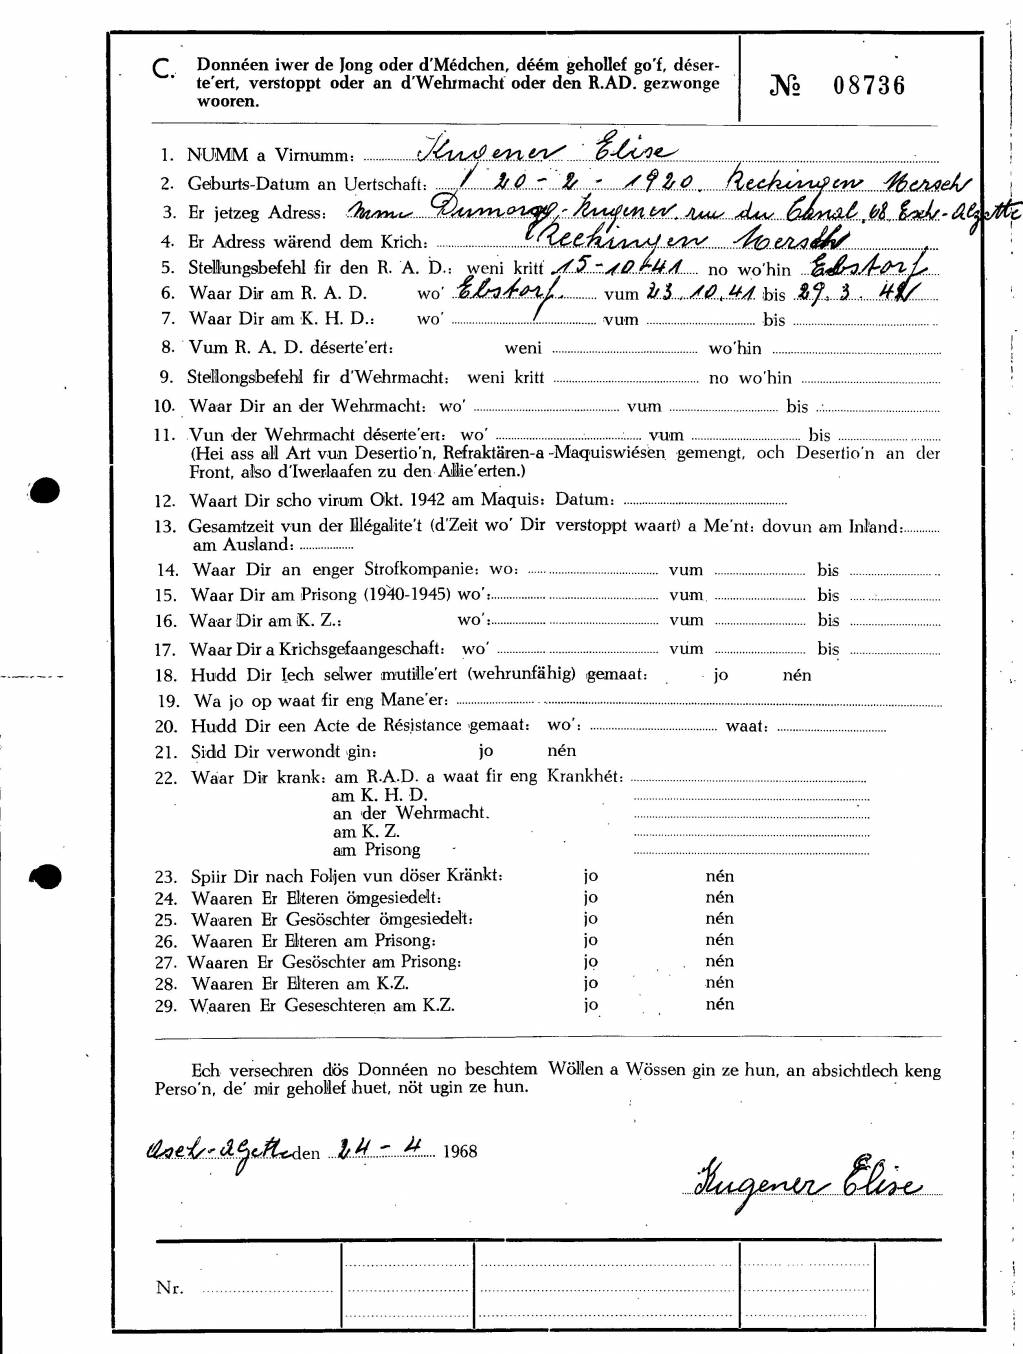 C. Donnéen iwer de Jong oder d'Médchen, déém gehollef go'f, déser-
te'ert, verstoppt oder an d'Wehrmacht oder den R.AD. gezwonge
wooren.
№ 08736
1. NUMM a Virnumm: Kugener Elise
2. Geburts-Datum an Uertschaft: 20-2-1920. Reckingen Mersch
3. Er jetzeg Adress: Mme Dumorg-Kugener rue du Canal, 68 Esch-Alzette
4. Er Adress wärend dem Krich: Reckingen Mersch
5. Stellungsbefehl fir den R. A. D.: weni kritt 15-10-41 no wo'hin Ebstorf
6. Waar Dir am R. A. D. wo' Ebstorf. vum 23.10.41 bis 29.3.42
7. Waar Dir am K. H. D.: wo' vum bis
8. Vum R. A. D. déserte'ert: weni wo'hin
9. Stellongsbefehl fir d'Wehrmacht: weni kritt no wo'hin
10. Waar Dir an der Wehrmacht: wo' vum bis
11. Vun der Wehrmacht déserte'ert: wo' vum bis
(Hei ass all Art vun Desertio'n, Refraktären-a-Maquiswiésen gemengt, och Desertio'n an der
Front, also d'Iwerlaafen zu den Allie'erten.)
12. Waart Dir scho virum Okt. 1942 am Maquis: Datum:
13. Gesamtzeit vun der Illégalite't (d'Zeit wo' Dir verstoppt waart) a Me'nt: dovun am Inland:
am Ausland:
14. Waar Dir an enger Strofkompanie: wo: vum bis
15. Waar Dir am Prisong (1940-1945) wo': vum bis
16. Waar Dir am K. Z.: wo': vum bis
17. Waar Dir a Krichsgefaangeschaft: wo' vum bis
18. Hudd Dir Iech selwer mutille'ert (wehrunfähig) gemaat: jo nén
19. Wa jo op waat fir eng Mane'er:
20. Hudd Dir een Acte de Résistance gemaat: wo': waat:
21. Sidd Dir verwondt gin: jo nén
22. Waar Dir krank: am R.A.D. a waat fir eng Krankhét:
am K. H. D.
an der Wehrmacht.
am K. Z.
am Prisong
23. Spiir Dir nach Foljen vun döser Kränkt: jo nén
24. Waaren Er Elteren ömgesiedelt: jo nén
25. Waaren Er Gesöschter ömgesiedelt: jo nén
26. Waaren Er Elteren am Prisong: jo nén
27. Waaren Er Gesöschter am Prisong: jo nén
28. Waaren Er Elteren am K.Z. jo nén
29. Waaren Er Geseschteren am K.Z. jo nén
Ech versechren dös Donnéen no beschtem Wöllen a Wössen gin ze hun, an absichtlech keng
Perso'n, de' mir gehollef huet, nöt ugin ze hun.
den 24-4 1968
Kugener Elise
Nr.